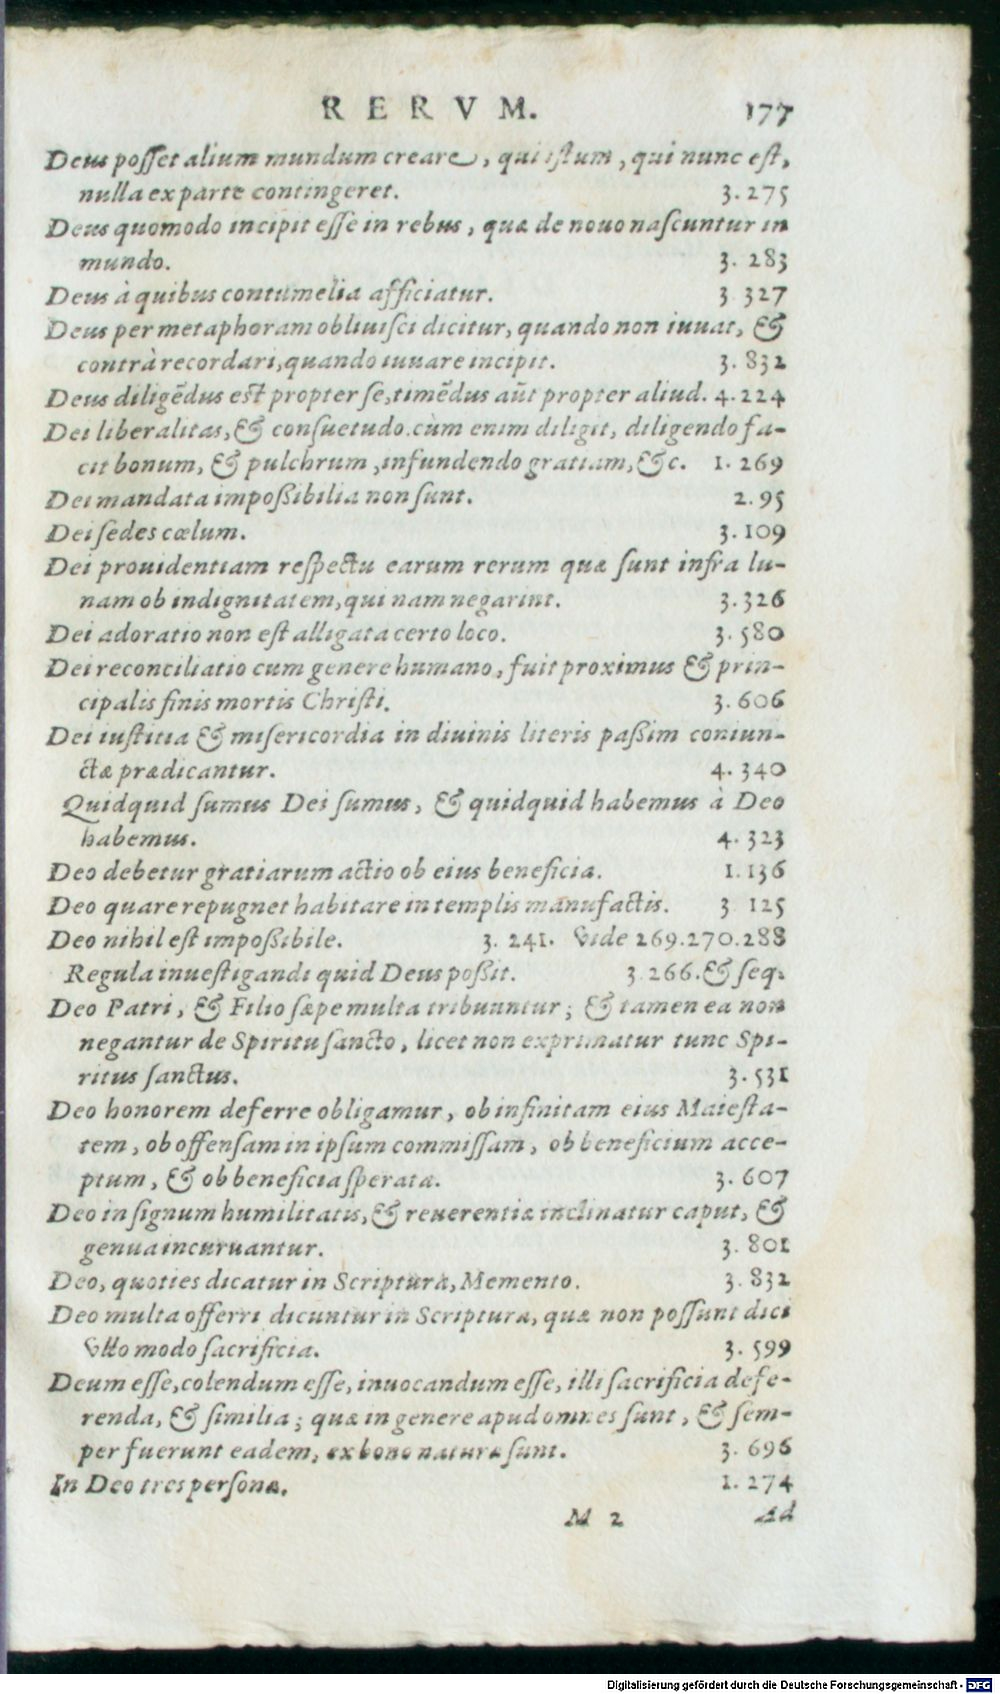 RERVM. 177
Deus posset alium mundum creare, qui istum, qui nunc est,
nulla ex parte contingeret. 3.275
Deus quomodo incipit esse in rebus, quæ de nouo nascuntur in
mundo. 3. 283
Deus à quibus contumelia afficiatur. 3 327
Deus per metaphoram obliuisci dicitur, quando non iuuat, &
contrà recordari, quando iuuare incipit. 3. 832
Deus diligēdus est propter se, timēdus aūt propter aliud. 4.224
Dei liberalitas, & consuetudo. cùm enim diligit, diligendo fa-
cit bonum, & pulchrum, infundendo gratiam, &c. 1. 269
Dei mandata impoßibilia non sunt. 2.95
Dei sedes cœlum. 3.109
Dei prouidentiam respectu earum rerum quæ sunt infra lu-
nam ob indignitatem, qui nam negarint. 3.326
Dei adoratio non est alligata certo loco. 3. 580
Dei reconciliatio cum genere humano, fuit proximus & prin-
cipalis finis mortis Christi. 3. 606
Dei iustitia & misericordia in diuinis literis paßim coniun-
ctæ prædicantur. 4. 340
Quidquid sumus Dei sumus, & quidquid habemus à Deo
habemus. 4. 323
Deo debetur gratiarum actio ob eius beneficia. 1.136
Deo quare repugnet habitare in templis manufactis. 3 125
Deo nihil est impoßibile. 3. 241. Vide 269.270.288
Regula inuestigandi quid Deus poßit. 3.266. & seq.
Deo Patri, & Filio sæpe multa tribuuntur; & tamen ea non
negantur de Spiritu sancto, licet non exprimatur tunc Spi-
ritus sanctus. 3.531
Deo honorem deferre obligamur, ob infinitam eius Maiesta-
tem, ob offensam in ipsum commissam, ob beneficium acce-
ptum, & ob beneficia sperata. 3. 607
Deo in signum humilitatis, & reuerentiæ inclinatur caput, &
genua incuruantur. 3. 801
Deo, quoties dicatur in Scriptura, Memento. 3. 832
Deo multa offerri dicuntur in Scriptura, quæ non possunt dici
Vllo modo sacrificia. 3. 599
Deum esse, colendum esse, inuocandum esse, illi sacrificia defe-
renda, & similia; quæ in genere apud omnes sunt, & sem-
per fuerunt eadem, ex bono naturæ sunt. 3. 696
In Deo tres personæ. 1. 274
M 2 Ad
Digitalisierung gefördert durch die Deutsche Forschungsgemeinschaft - DFG